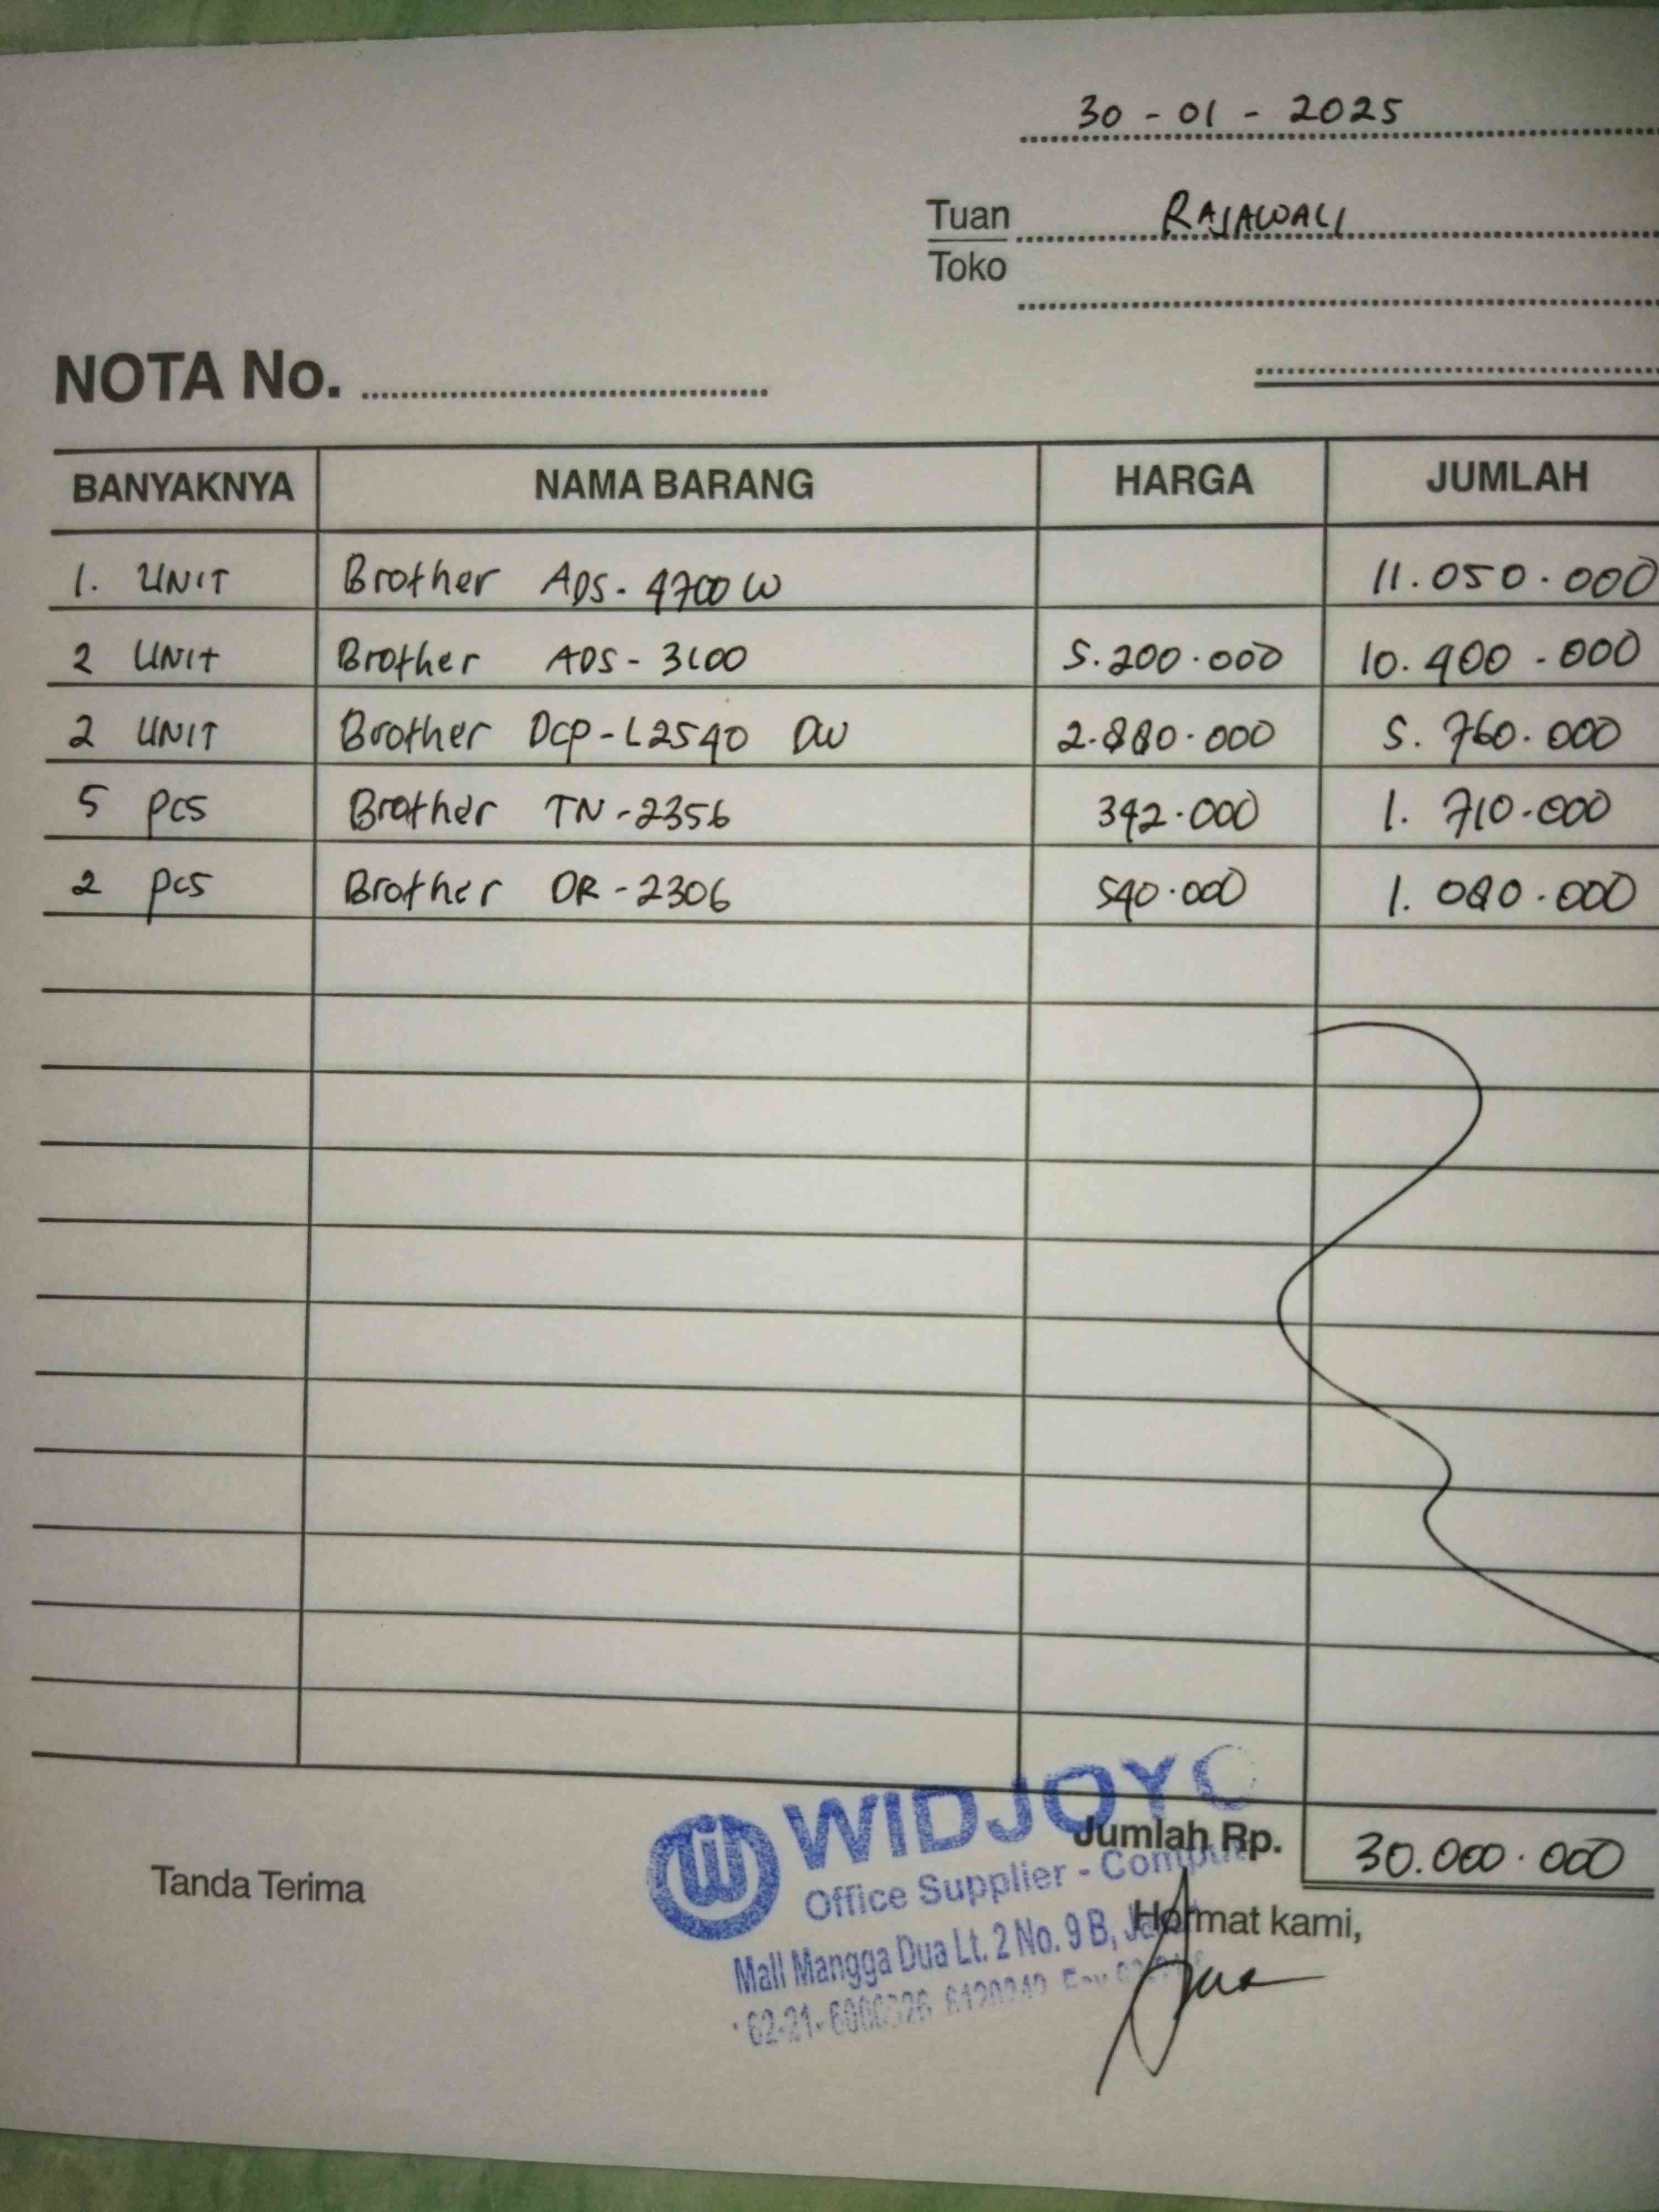 30 - 01 - 2025
Tuan RAJAWALI
Toko
NOTA No.
BANYAKNYA NAMA BARANG HARGA JUMLAH
1. UNIT Brother ADS- 4700 W 11.050.000
2 UNIT Brother ADS - 3100 5.200.000 10.400.000
2 UNIT Brother DCP-L2540 DW 2.880.000 5.760.000
5 pcs Brother TN-2356 342.000 1.710.000
2 pcs Brother DR-2306 540.000 1.080.000
WIDJOYO
Jumlah Rp. 30.000.000
Office Supplier -
Tanda Terima
Hormat kami,
Mall Mangga Dua Lt. 2 No. 9 B,